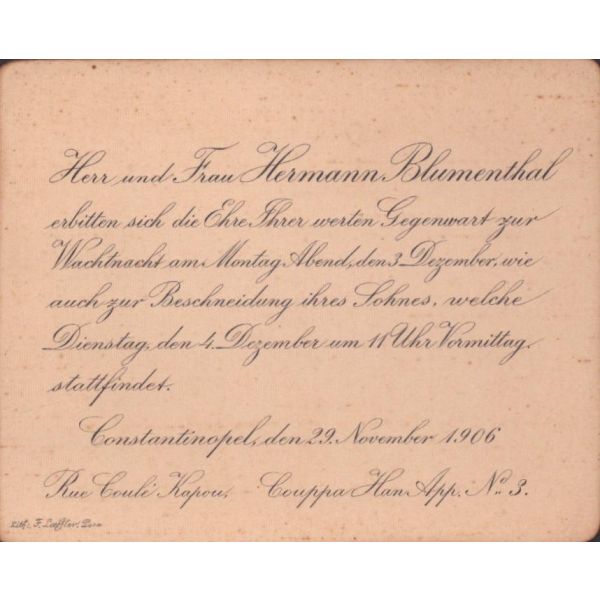 Herr und Frau Hermann Blumenthal
erbitten sich die Ehre Ihrer werten Gegenwart zur
Wachtnacht am Montag Abend, den 3. Dezember, wie
auch zur Beschneidung ihres Sohnes, welche
Dienstag, den 4. Dezember um 11 Uhr Vormittag.
stattfindet.
Constantinopel, den 29. November 1906
Rue Coulé Kapou, Couppa Han App. No. 3.
Lith. F. Loeffler, Pera